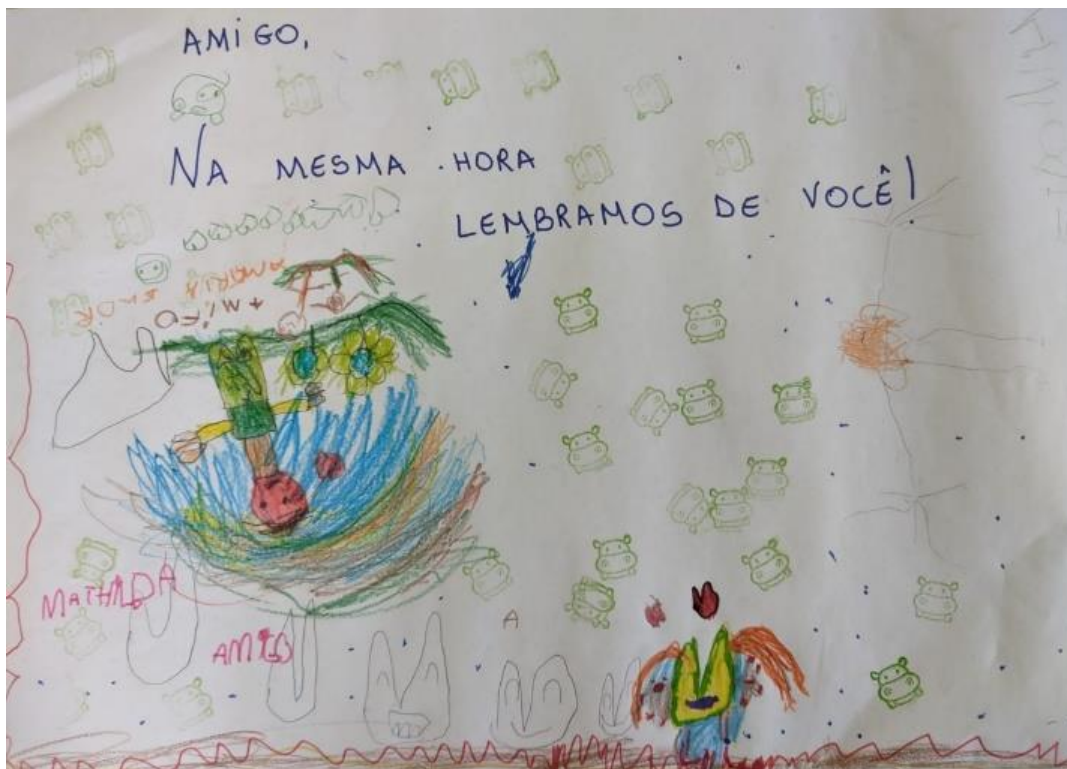 AMIGO,
NA MESMA HORA
LEMBRAMOS DE VOCÊ!
MATHILDA
AMIGO
A